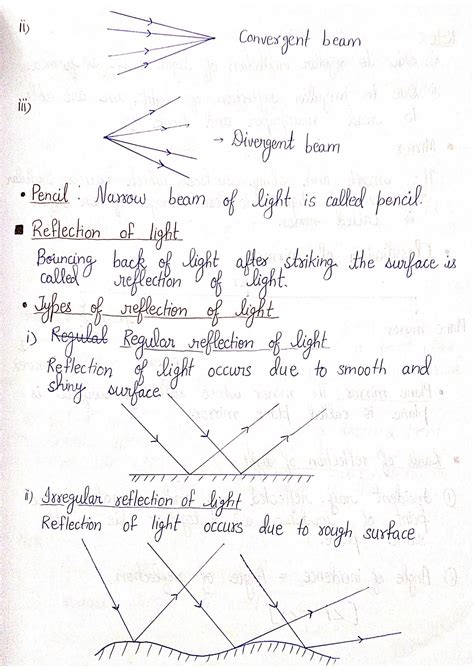 ii)
Convergent beam
iii)
→ Divergent beam
• Pencil : Narrow beam of light is called pencil.
■ Reflection of light
Bouncing back of light after striking the surface is
called reflection of light.
• Types of reflection of light
i) Regulal Regular reflection of light
Reflection of light occurs due to smooth and
shiny surface.
ii) Irregular reflection of light
Reflection of light occurs due to rough surface